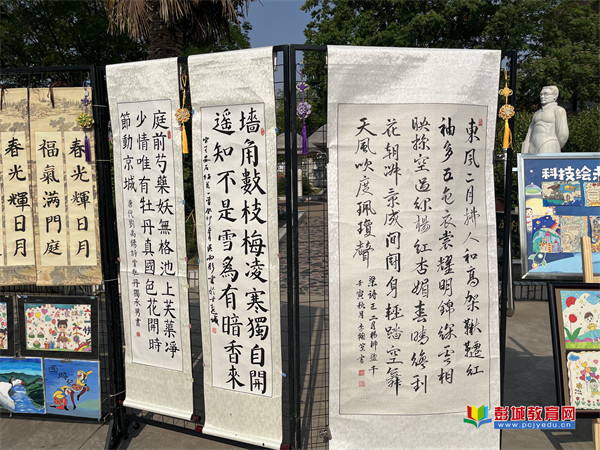 春光輝日月
福氣满門庭
春光輝日月
庭前芍藥妖無格池上芙蕖凈
少情唯有牡丹真國色花開時
節動京城
唐代劉禹錫詩賞牡丹
墻角數枝梅凌寒獨自開
遥知不是雪爲有暗香來
東風二月拂人和高架鞦韆紅
袖多五色衣裳耀明錦綵雲相
映掠空過綠楊紅杏媚春晴
花朝身輕踏空舞
天風吹度珮瓊聲
壬寅秋月
科技绘
彭城教育网
www.pcjyedu.cn